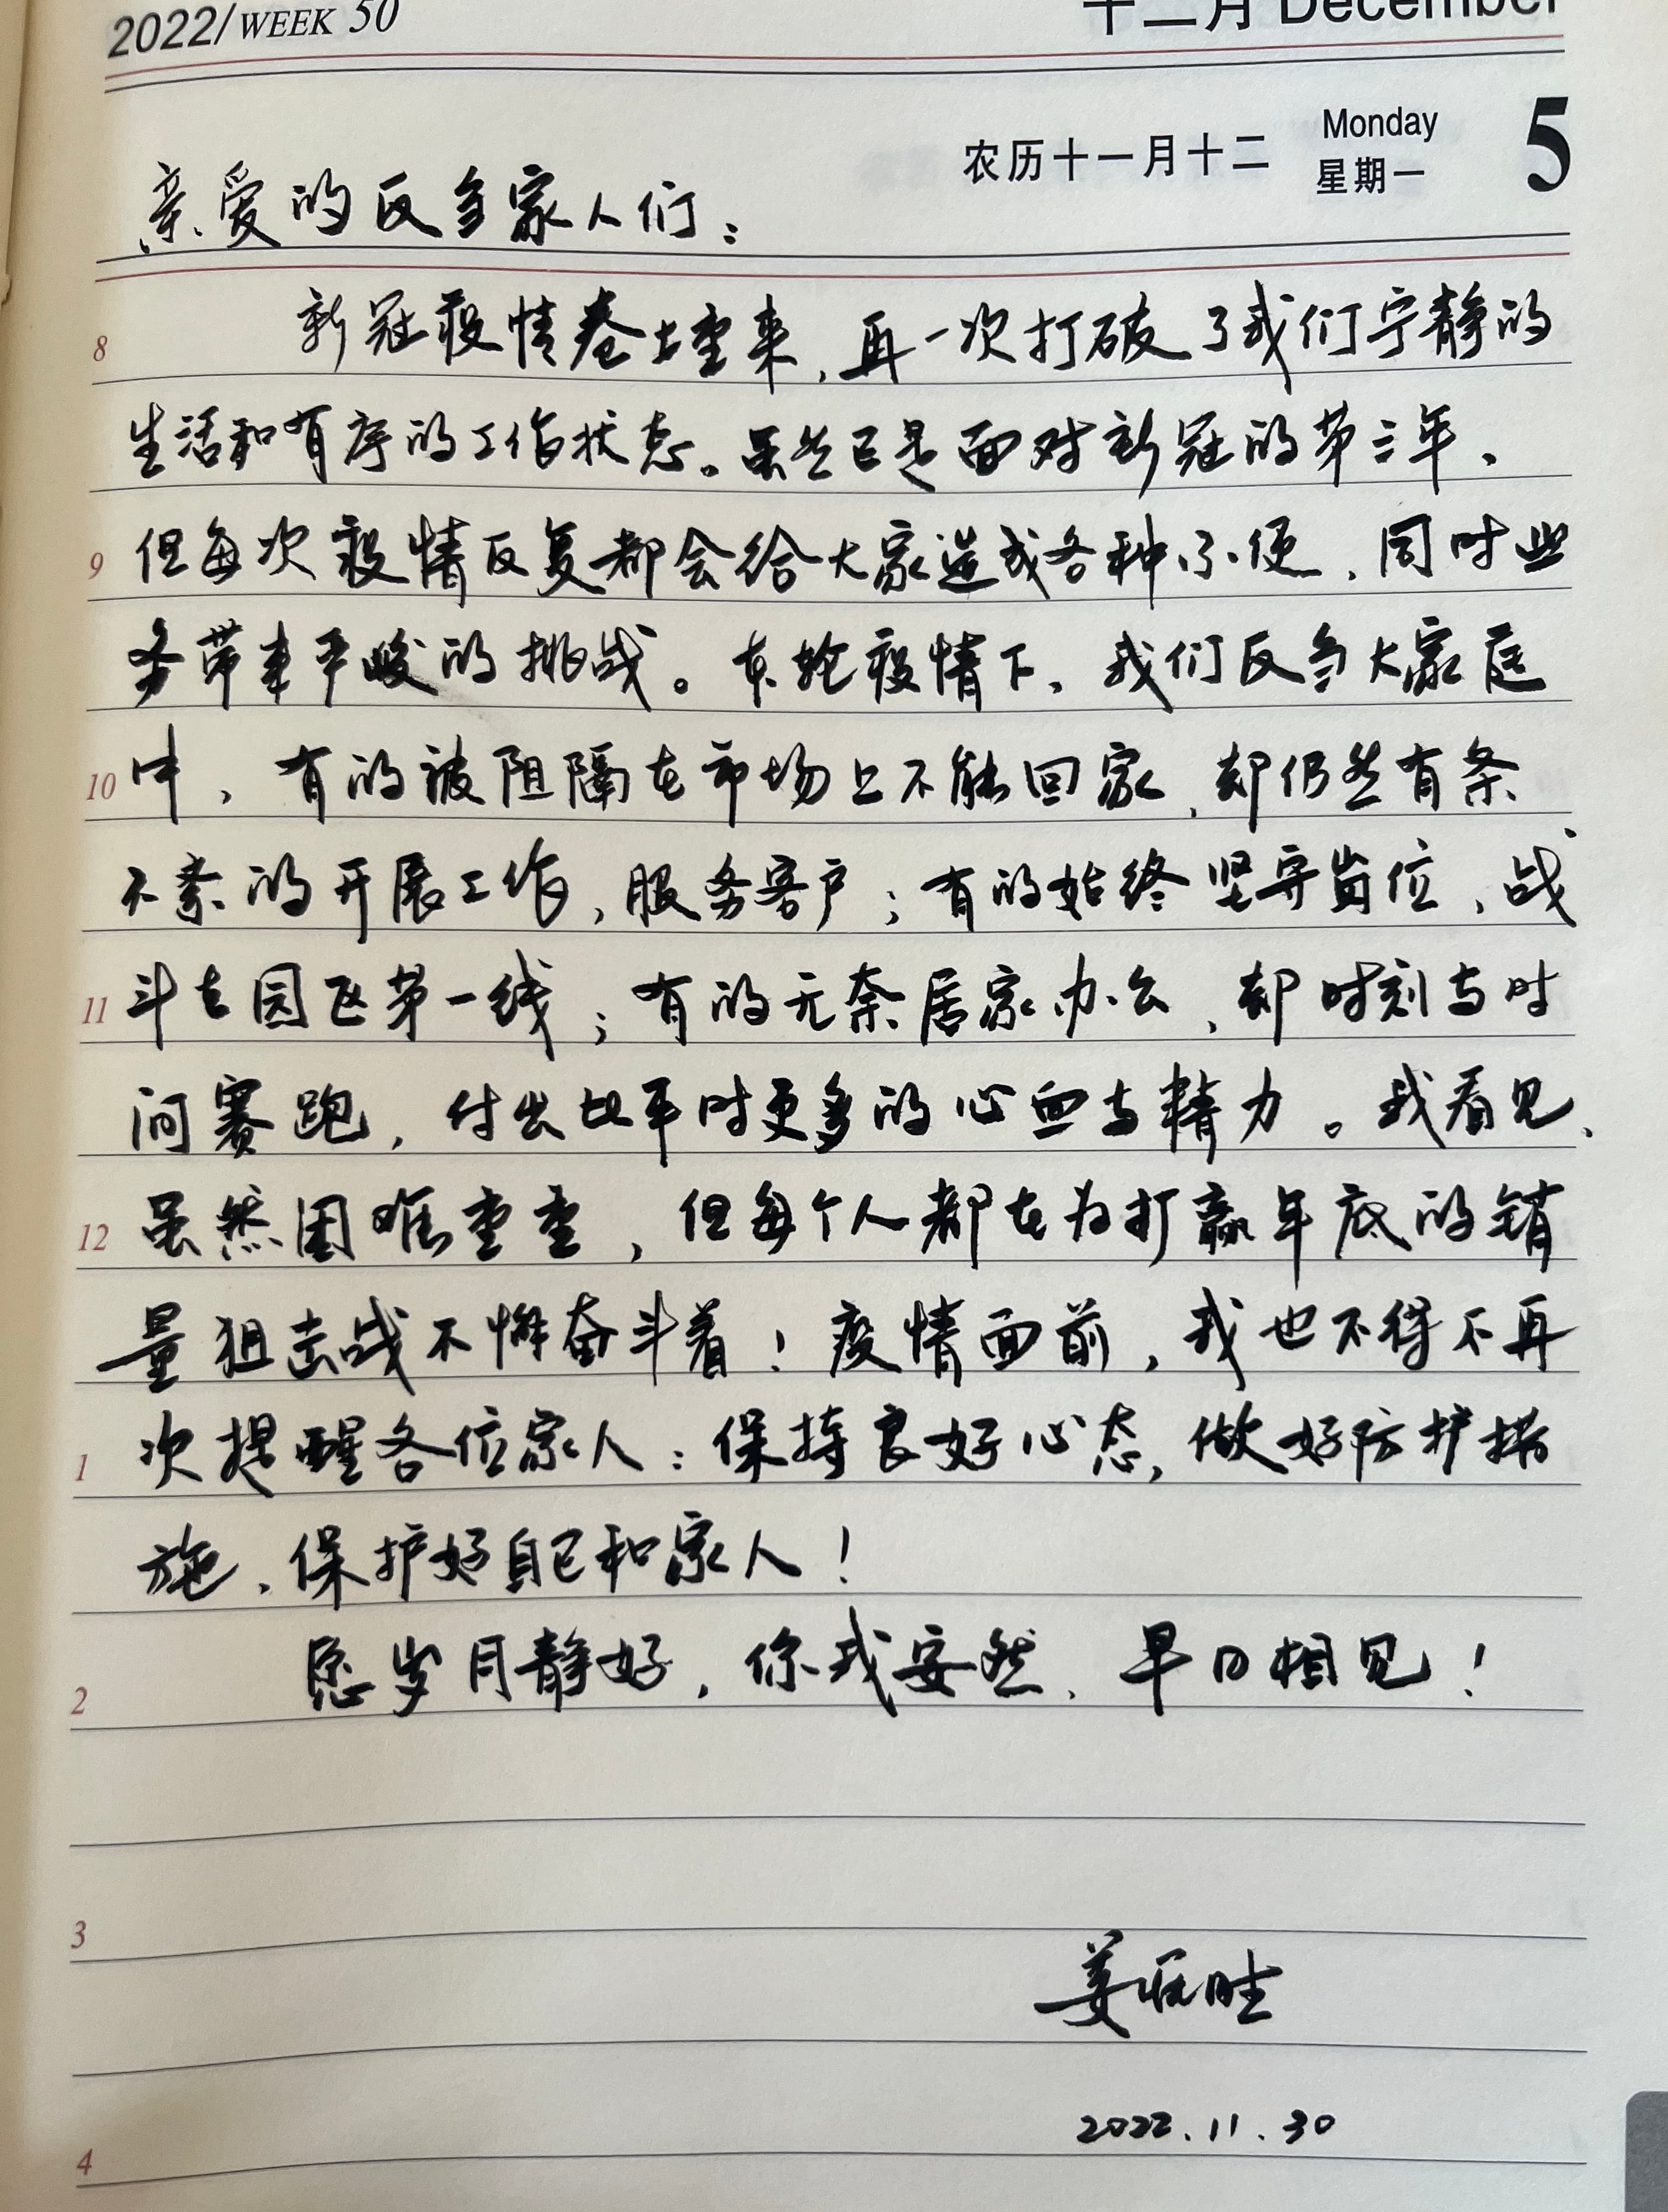 2022/WEEK 50
十二月 December
农历十一月十二
Monday
星期一
5
亲爱的反刍家人们：
8 新冠疫情卷土重来，再一次打破了我们宁静的
生活和有序的工作状态。虽然已是面对新冠的第三年，
9 但每次疫情反复都会给大家造成各种不便，同时业
务带来严峻的挑战。本轮疫情下，我们反刍大家庭
10 中，有的被阻隔在市场上不能回家，却仍然有条
不紊的开展工作，服务客户；有的始终坚守岗位，战
11 斗在园区第一线；有的无奈居家办公，却时刻与时
间赛跑，付出比平时更多的心血与精力。我看见，
12 虽然困难重重，但每个人都在为打赢年底的销
量狙击战不懈奋斗着！疫情面前，我也不得不再
1 次提醒各位家人：保持良好心态，做好防护措
施，保护好自己和家人！
2 愿岁月静好，你我安然，早日相见！
3
姜
2022.11.30
4